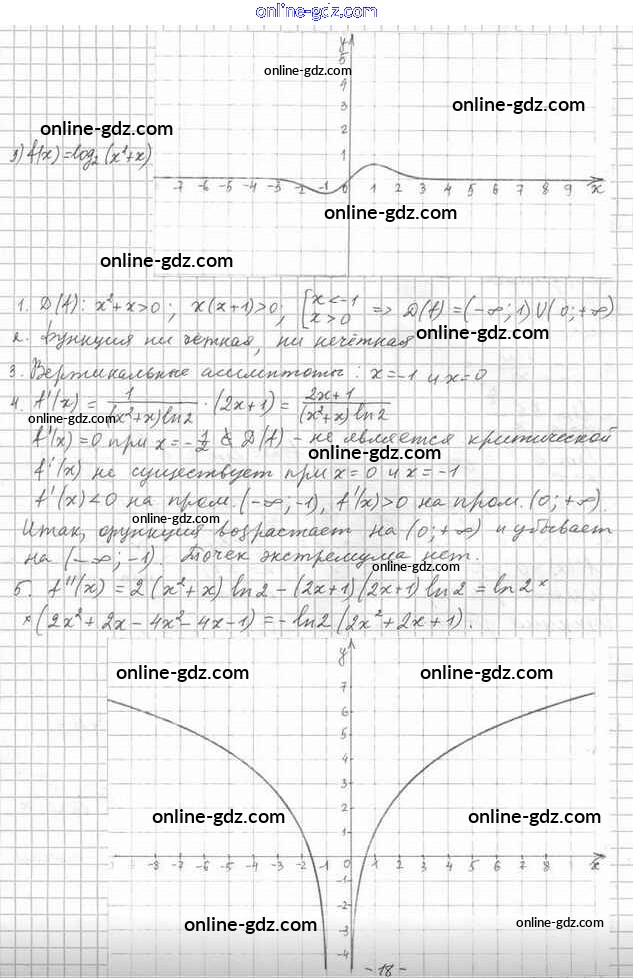 online-gdz.com
y
5
online-gdz.com
4
3
online-gdz.com
2
online-gdz.com
1
3) f(x) = log₂ (x²+x)
-7 -6 -5 -4 -3 -2 -1 0 1 2 3 4 5 6 7 8 9 x
online-gdz.com
online-gdz.com
1. D(f): x²+x>0; x(x+1)>0; [x<-1 x>0 => D(f)=(-∞;1)U(0;+∞)
online-gdz.com
2. Функция ни четная, ни нечётная
3. Вертикальные асимптоты: x=-1 и x=0
4. f'(x) = 1/((x²+x)ln2) · (2x+1) = (2x+1)/((x²+x)ln2)
online-gdz.com
f'(x)=0 при x=-1/2 ∉ D(f) - не является критической
online-gdz.com
f'(x) не существует при x=0 и x=-1
f'(x)<0 на пром. (-∞;-1), f'(x)>0 на пром. (0;+∞).
online-gdz.com
Итак, функция возрастает на (0;+∞) и убывает
на (-∞;-1). Точек экстремума нет.
online-gdz.com
5. f''(x) = 2(x²+x)ln2-(2x+1)(2x+1)ln2 = ln2 ×
×(2x²+2x-4x²-4x-1)=-ln2(2x²+2x+1).
y
online-gdz.com online-gdz.com
7
6
5
4
3
2
online-gdz.com online-gdz.com
1
-8 -7 -6 -5 -4 -3 -2 -1 0 1 2 3 4 5 6 7 8 9 x
-1
-2
online-gdz.com online-gdz.com
-3
-4
-18-